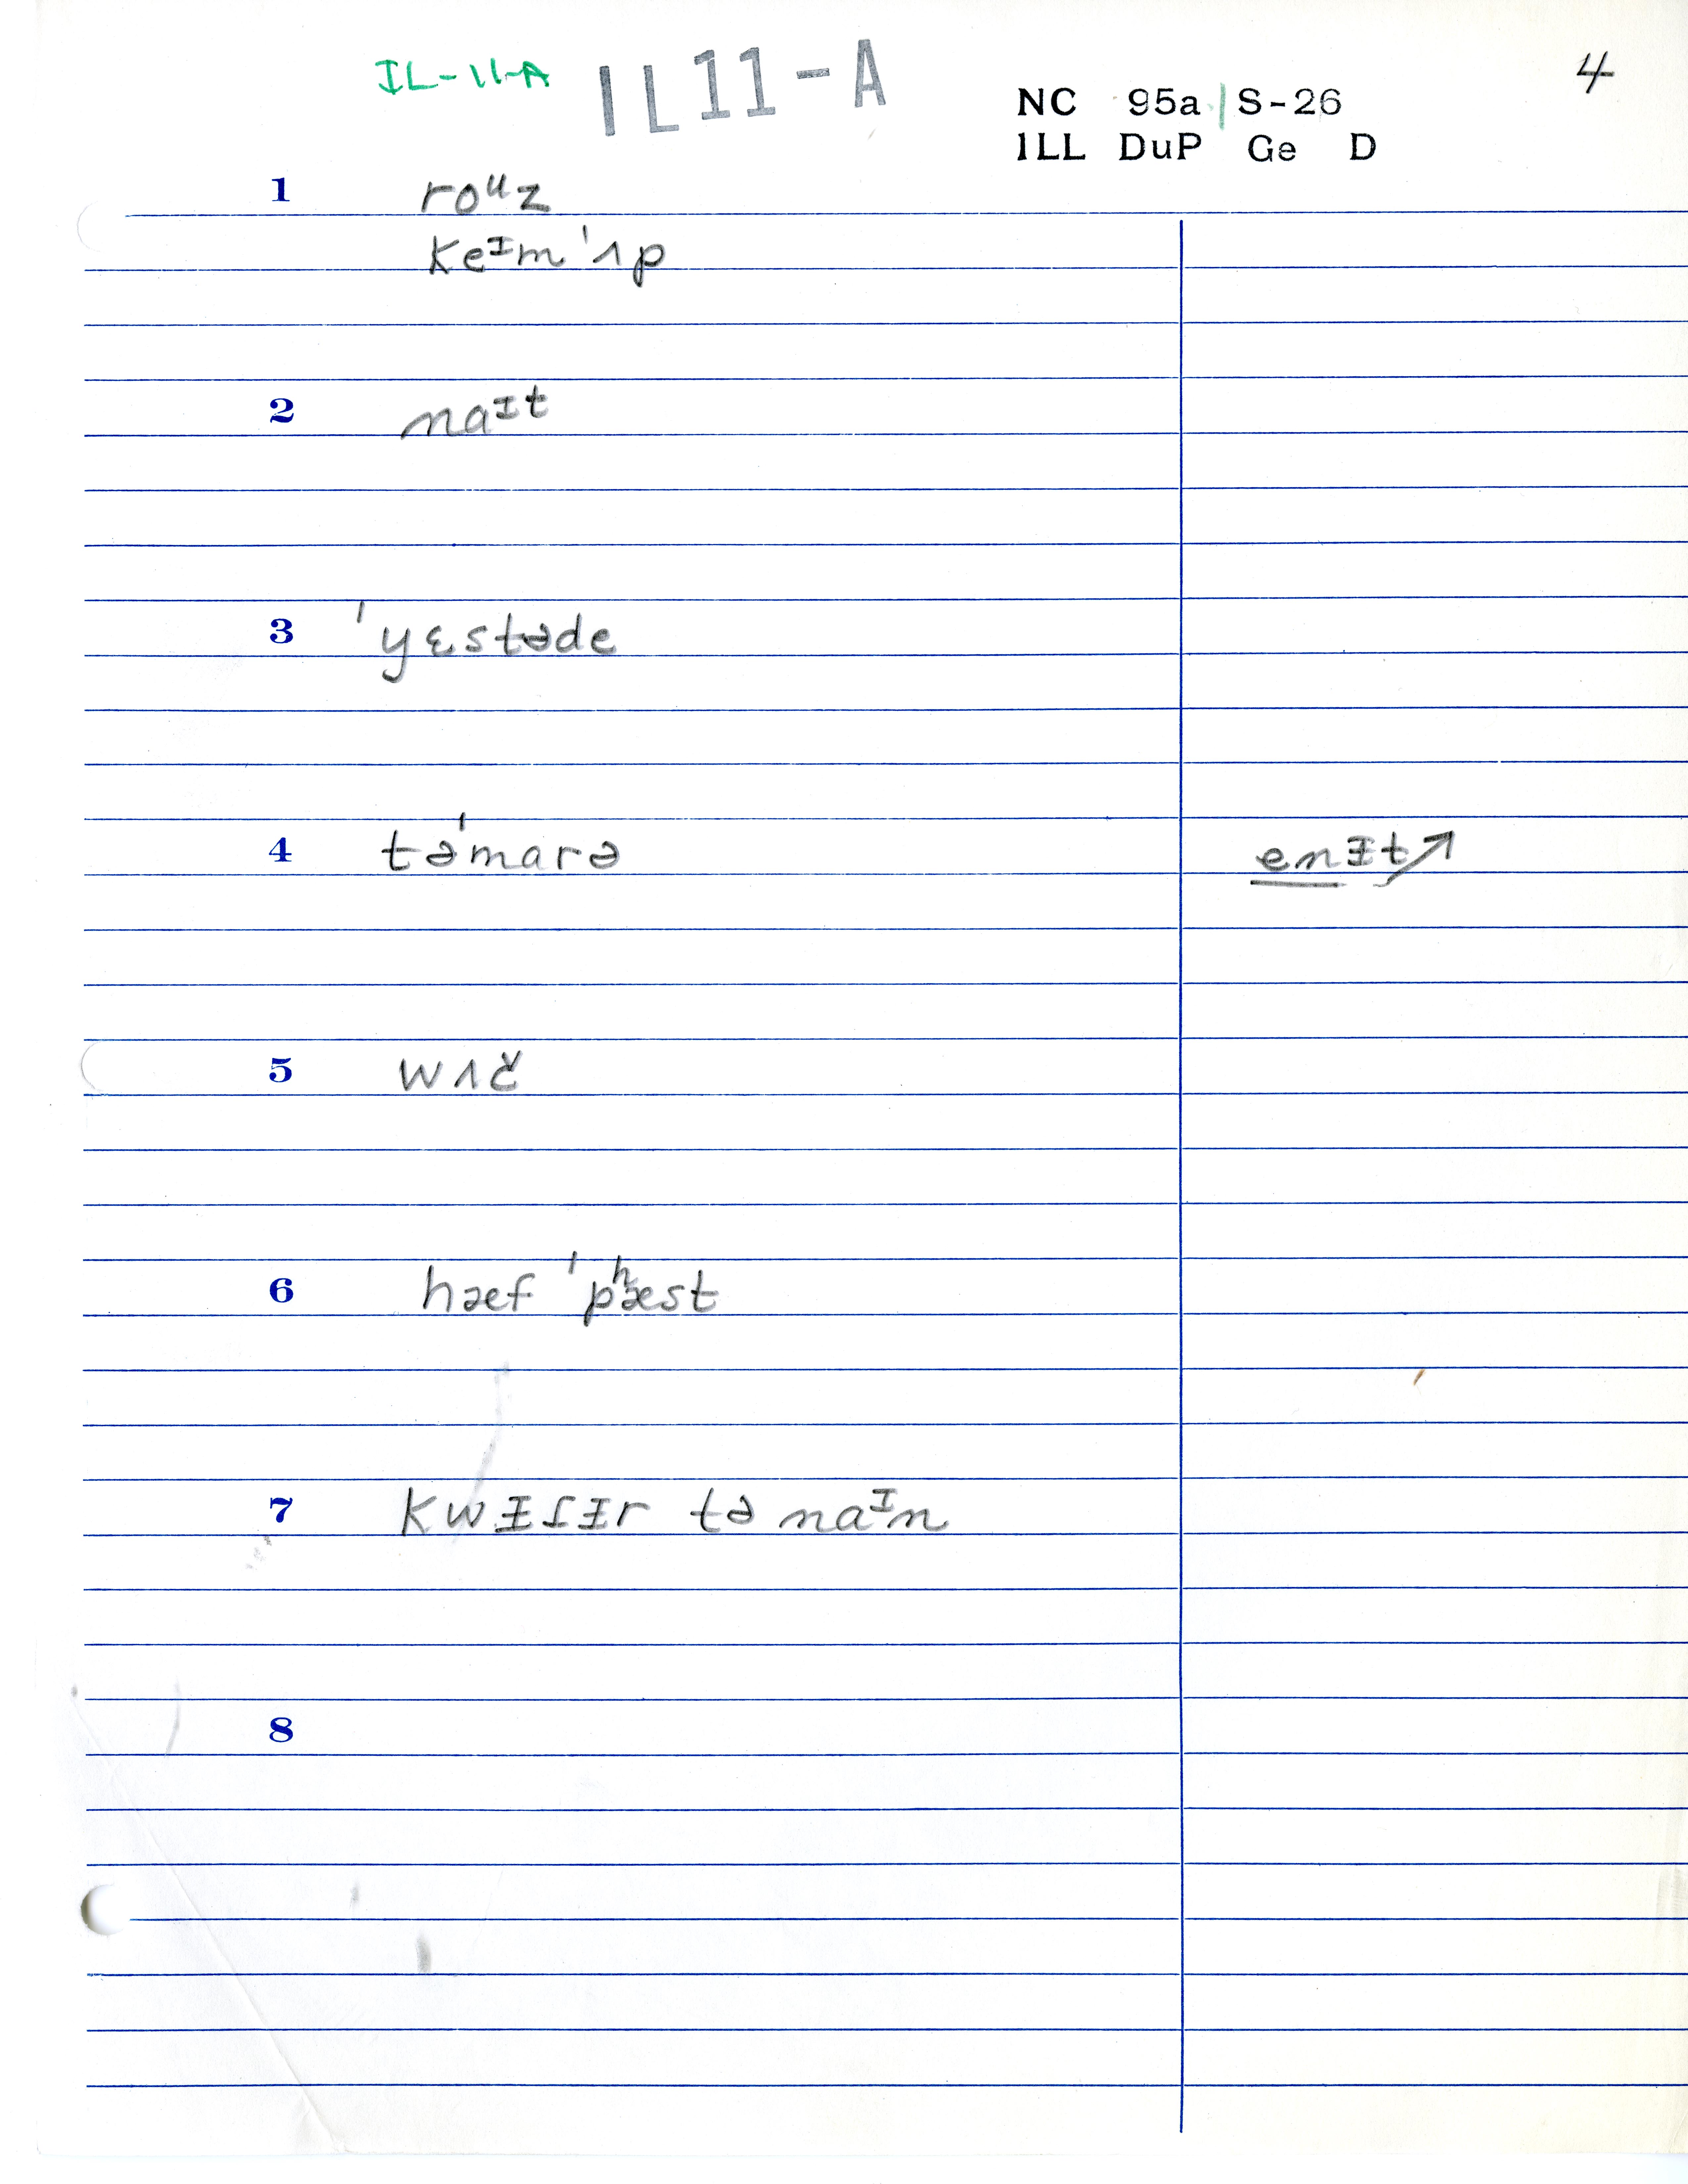 IL-11-A IL11-A 4
NC 95a | S-26
ILL DuP Ge D
1 roᶸz
keᶦm ˈʌp
2 naᶦt
3 ˈyɛstəde
4 təˈmarə enɪt↗
5 wʌč
6 hæf ˈpʰæst
7 kwɪſɪr tə naᶦn
8